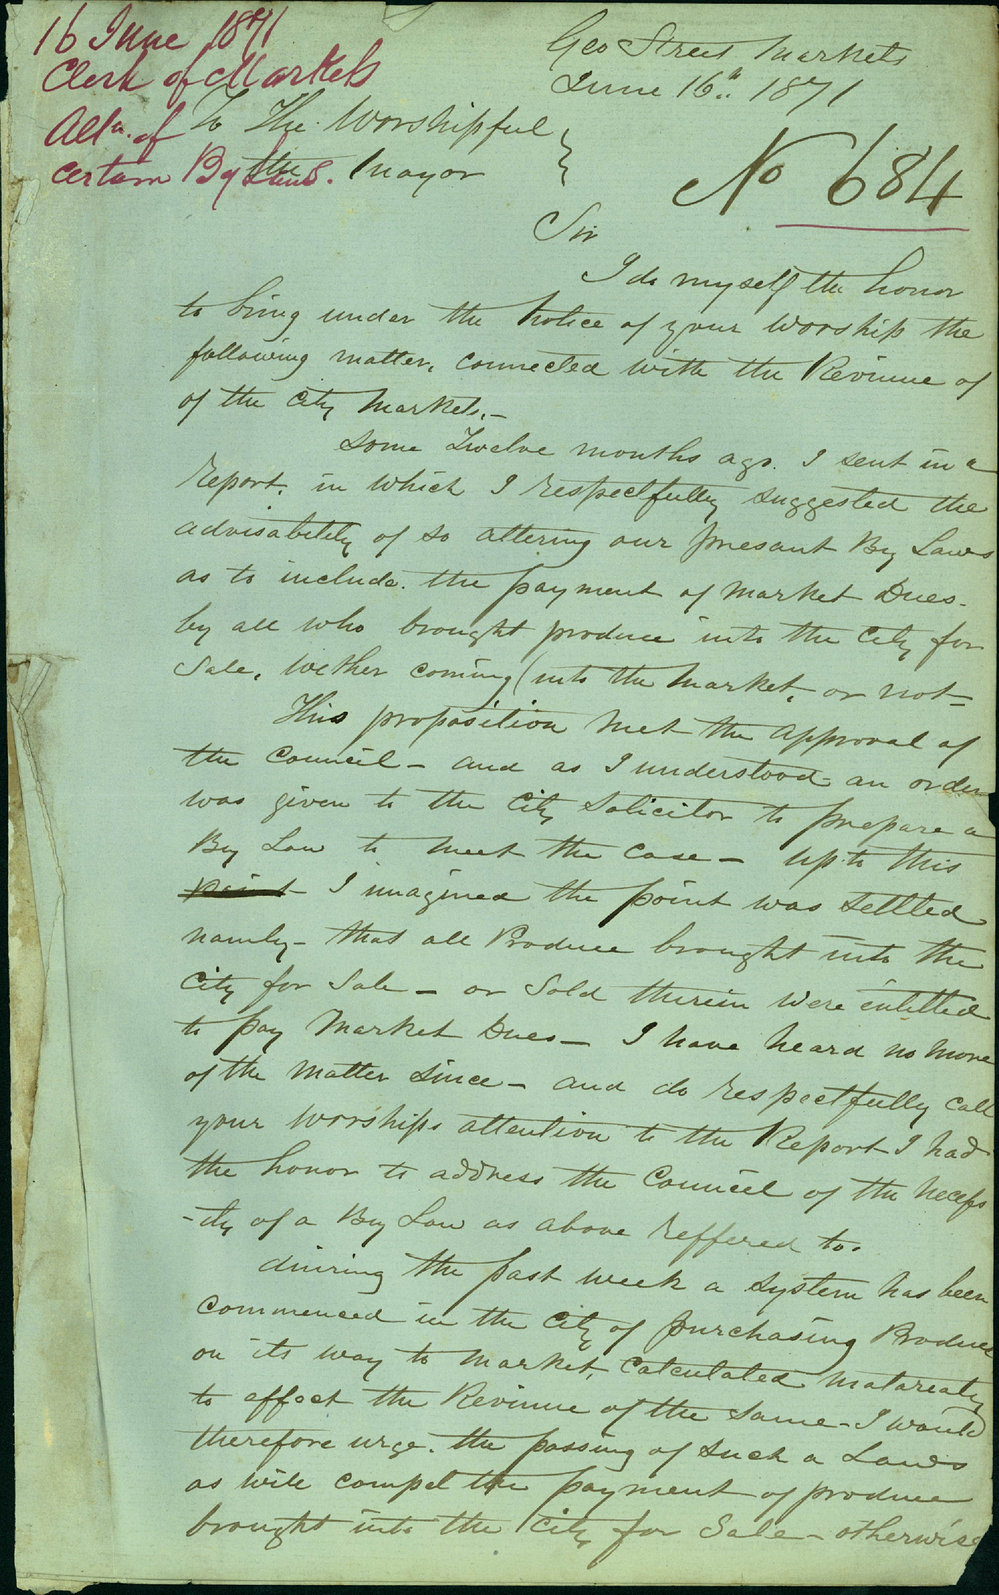 16 June 1871
Clerk of Markets
Altn. of
certain By Laws.
Geo Street Markets
June 16th 1871
To The Worshipful
the Mayor
No 684
Sir
I do myself the honor
to bring under the notice of your Worship the
following matter, connected with the Revinue of
of the City Markets.-
Some Twelve months ago. I sent in a
report, in which I respectfully suggested the
advisability of so altering our presant By Laws
as to include. the payment of Market Dues-
by all who brought produce into the City for
Sale, wether coming (into the Market, or not-
This proposition met the approval of
the Council - and as I understood an order
was given to the City Solicitor to prepare a
By Law to meet the case - up to this
point I imagined the point was settled
namly - that all Produce brought into the
City for Sale - or Sold therein were entitled
to pay Market Dues - I have heard no more
of the matter since - and do respectfully call
your worships attention to the Report I had
the honor to address the Council of the necess
-ity of a By Law as above reffered to.
during the past week a system has been
commenced in the City of purchasing Produce
on its way to market, calculated matarealy
to affect the Revinue of the same - I would
therefore urge. the passing of such a Laws
as will compel the payment of produce
brought into the City for Sale - otherwise